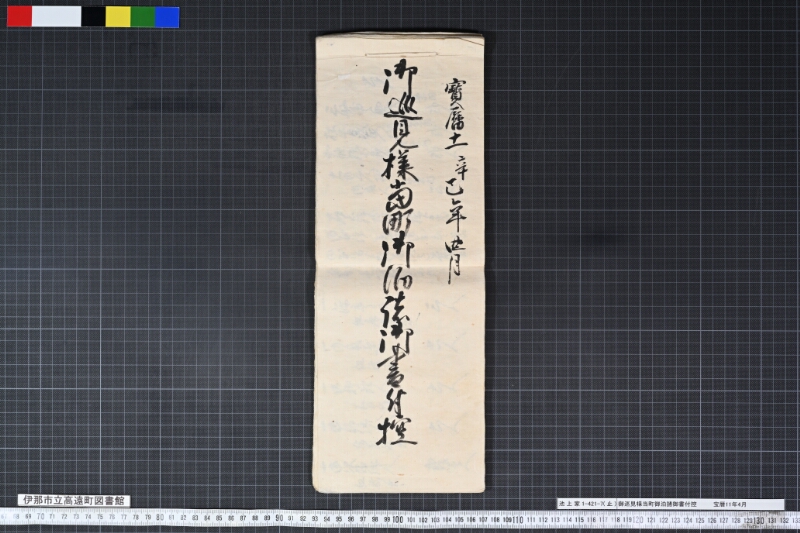 寶暦十一辛巳年四月
御巡見様當町御泊諸御書付控
伊那市立高遠町図書館
御巡見様当町御泊諸御書付控 宝暦11年4月